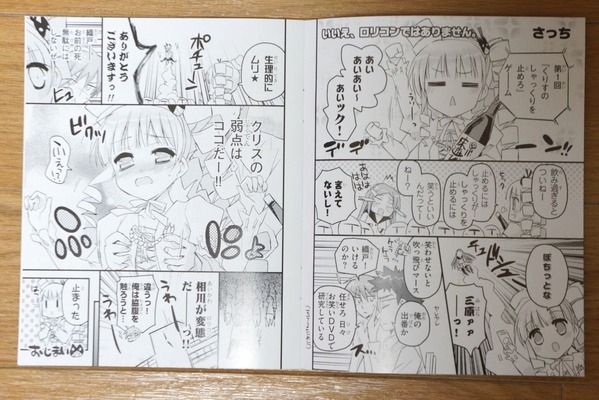 いいえ、ロリコンではありません。
さっち
第1回
「くりすの
しゃっくりを
止めろ」
あい
あいあい〜
あいック!
デデーン!!
飲み過ぎると
ついねー
しゃっくりが
止めるには
しゃっくりを
止めるには
笑うといい
んだってー
ねー?
あなはは
言えて
ないし!
ぽちっとな
チュドーン
三原ァァ
ーっ!
笑わせないと
吹っ飛びァース
俺の
出番か
織戸!
いけるのか?
任せろ 日々
お笑いDVDで
研究している
生理的に
ムリ★
ポチューン
ありがとう
ございますっ!!
織戸
お前の死
無駄には
しないぜ
クリスの
弱点は
ココだー!!
ビクッ
いぇっ
相川が変態
だーっ!
うわー
うわー
違うっ!
俺は脇腹を
触ろうと…
止まった
―おしまい